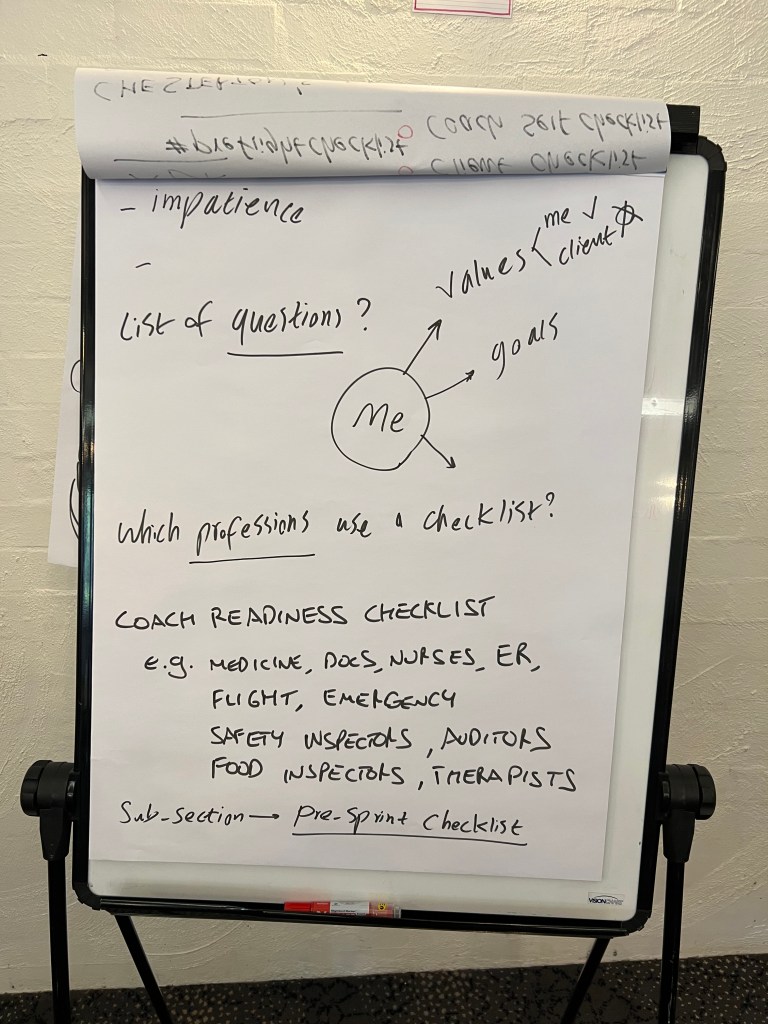 #preflightchecklist
Coach Self Checklist
Client Checklist
- impatience
-
List of questions?
values
me ✓
client
goals
Me
Which professions use a checklist?
COACH READINESS CHECKLIST
e.g. MEDICINE, DOCS, NURSES, ER,
FLIGHT, EMERGENCY
SAFETY INSPECTORS, AUDITORS
FOOD INSPECTORS, THERAPISTS
Sub-section → Pre-Sprint Checklist
VISIONCHART